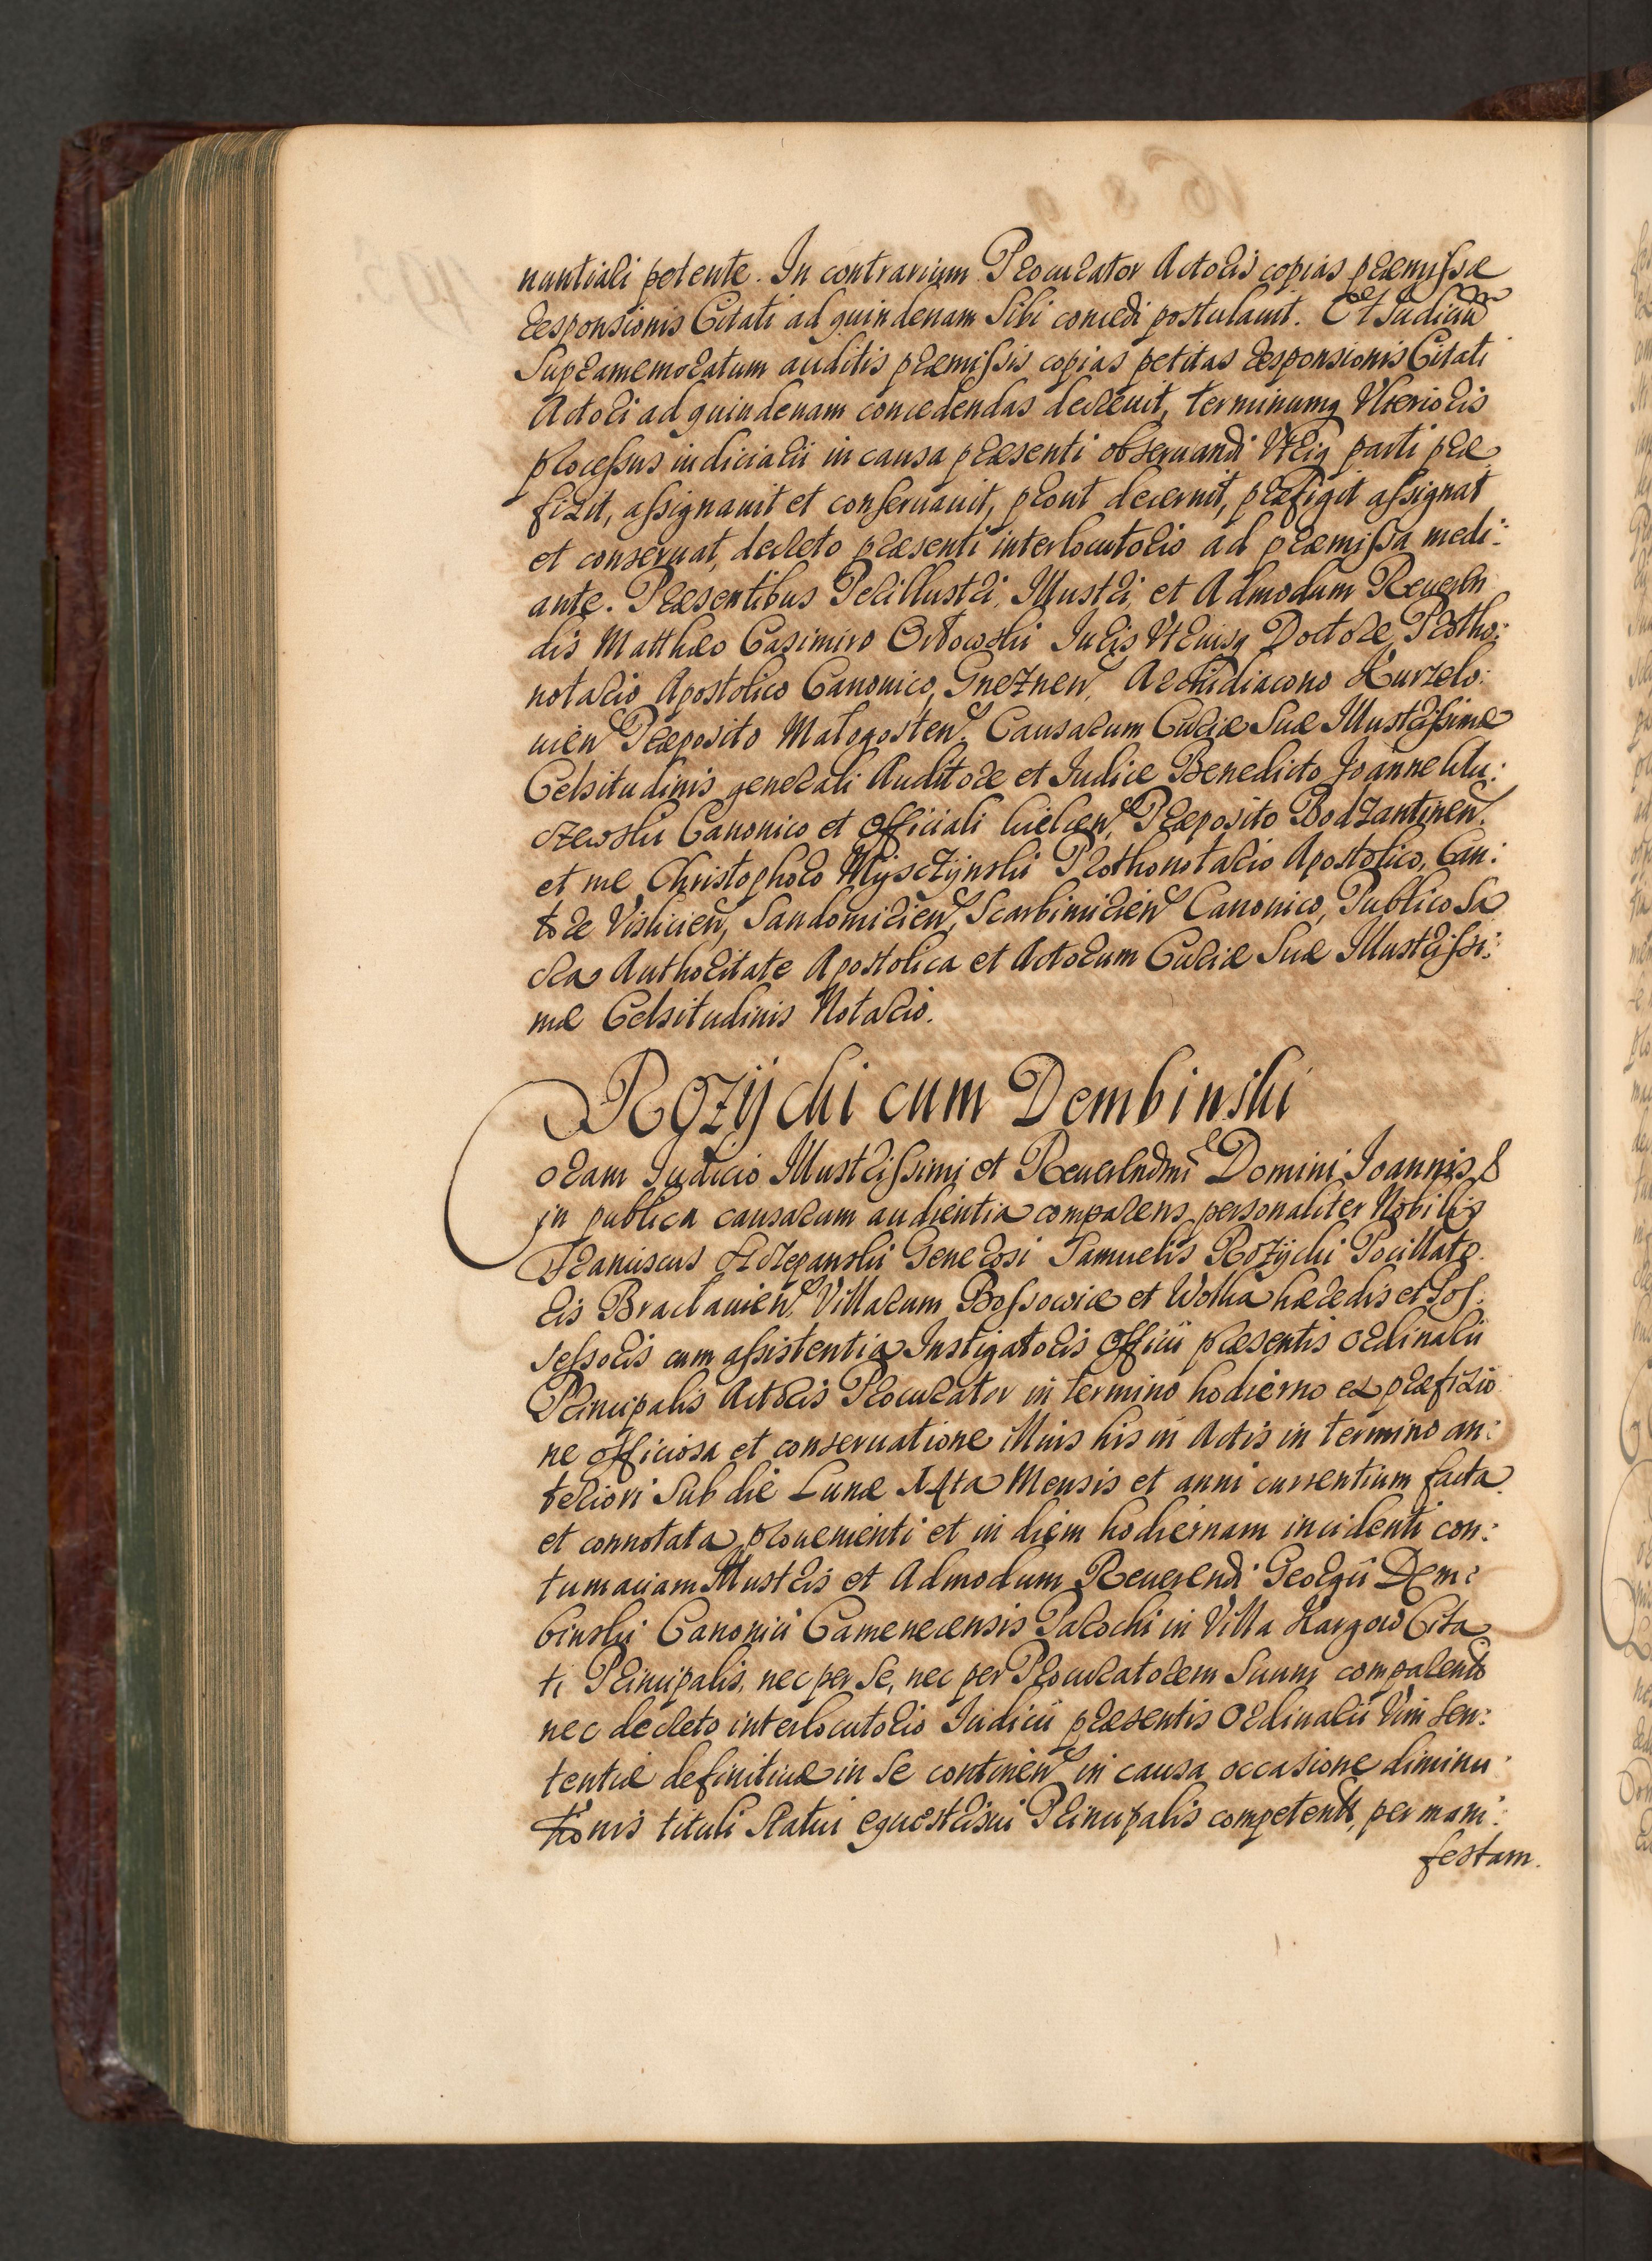 nuntiari petente. In contrarium Procurator Actoris copias præmissæ
responsionis Citati ad quindenam Sibi concedi postulauit. Et Iudiciũ
Supramemoratum auditis præmissis copias petitas responsionis Citati
Actori ad quindenam concedendas decreuit, terminumq Vlterioris
processus iudiciarii in causa præsenti obseruandi Vtriq parti præ
fixit, assignauit et conseruauit, prout decernit, præfigit assignat
et conseruat, decreto præsenti interlocutorio ad præmissa medi:
ante. Præsentibus Perillustri, Illustri, et Admodum Reueren
dis Matthæo Casimiro Orłowski Iuris Vtriusq Doctore, Protho:
notario Apostolico Canonico, Gneznen̄, Archidiacono Kurzelo:
uien̄ Præposito Małogosten̄. Causarum Curiæ Suæ Illustrissimæ
Celsitudinis generali Auditore et Iudice Benedicto Joanne
czewski Canonico et Officiali kielcen̄, Præposito Bodzantinen̄.
et me Christophoro Mysczÿnski Prothonotario Apostolico, Can:
tore Vislicien̄, Sandomirien̄, Scarbimirien̄ Canonico, Publico Sa
cra Authoritate Apostolica et Actorum Curiæ Suæ Illustrissi:
mæ Celsitudinis Notario.
Rozÿcki cum Dembinski
Coram Iudicio Illustrissimi et Reuerendmi Domini Ioannis &
in publica causarum audientia comparens personaliter Nobilis
Franciscus Sczepanski Generosi Samuelis Rozÿcki Pocillato
ris Braclauien̄. Villarum Bossowice et Wolka hæredis et Pos:
sessoris cum assistentia Instigatoris Officii præsentis Ordinarii
Principalis Actoris Procurator in termino hodierno ex præfixio
ne officiosa et conseruatione illius his in Actis in termino an:
teriori Sub die Lunæ X4ta Mensis et anni currentium facta
et connotata prouenienti et in diem hodiernam incidenti con:
tumaciam Illustris et Admodum Reuerendi Georgii Dem:
binski Canonici Camenecensis Parochi in Villa Kargow Cita
ti Principalis, nec per Se, nec per Procuratorem Suum comparentis
nec decreto interlocutorio Iudicii præsentis Ordinarii Vim Sen:
tentiæ definitiuæ in Se continen̄ in causa occasione diminu:
tionis tituli Statui equestri sui Principalis competentis, per mani:
festam.